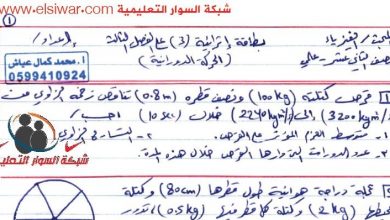 شبكة السوار التعليمية www.elsiwar.com
①
المبحث: الفيزياء
بطاقة إثرائية (3) على الفصل الثالث
إعداد/
الصف الثاني عشر - علمي
(الحركة الدورانية)
أ. محمد كمال عياش
0599410924
1 قرص كتلته (100kg) ونصف قطره (0.8m) تناقص زخمه الزاوي من
(3200kg/ إلى (2240kg/ خلال (10sec) احسب/
متوسط العزم المؤثر على القرص. 2- التسارع الزاوي
عدد الدورات التي دارها القرص خلال هذه المدة.
عجلة دراجة هوائية طول قطرها (80cm) وكتلة
(2kg) وكتلة كل قطر فيها (0.5kg) تدور
شبكة السوار التعليمية